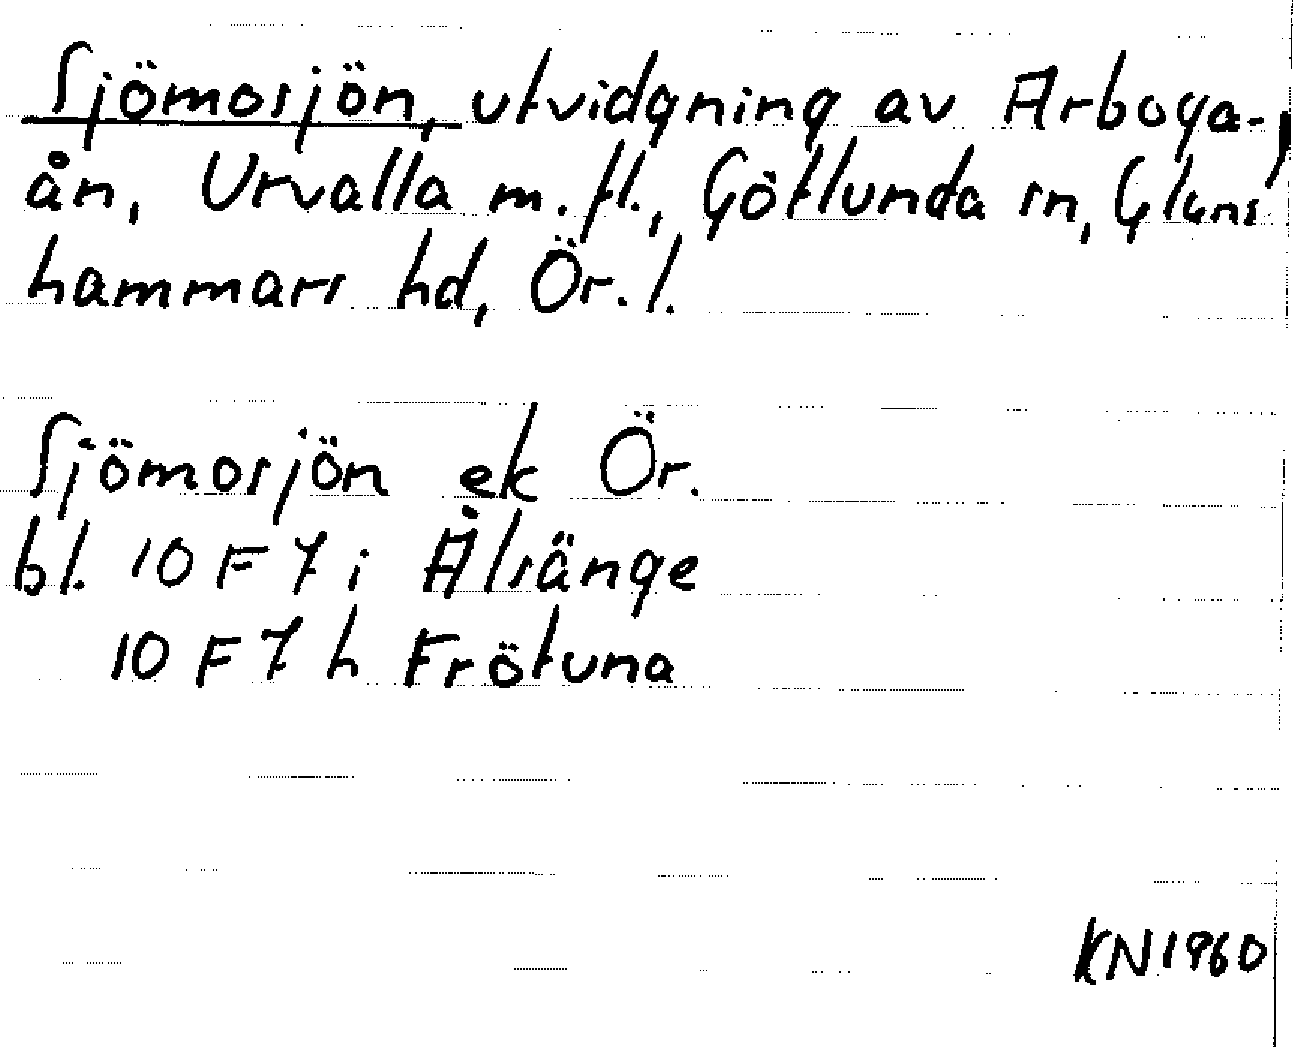 Sjömosjön, utvidgning av Arboga-
ån, Urvalla m. fl., Götlunda sn, Glans
hammars hd, Ör. l.
Sjömosjön ek Ör.
bl. 10 F 7 i Ålsänge
10 F 7 h Frötuna
KN 1960